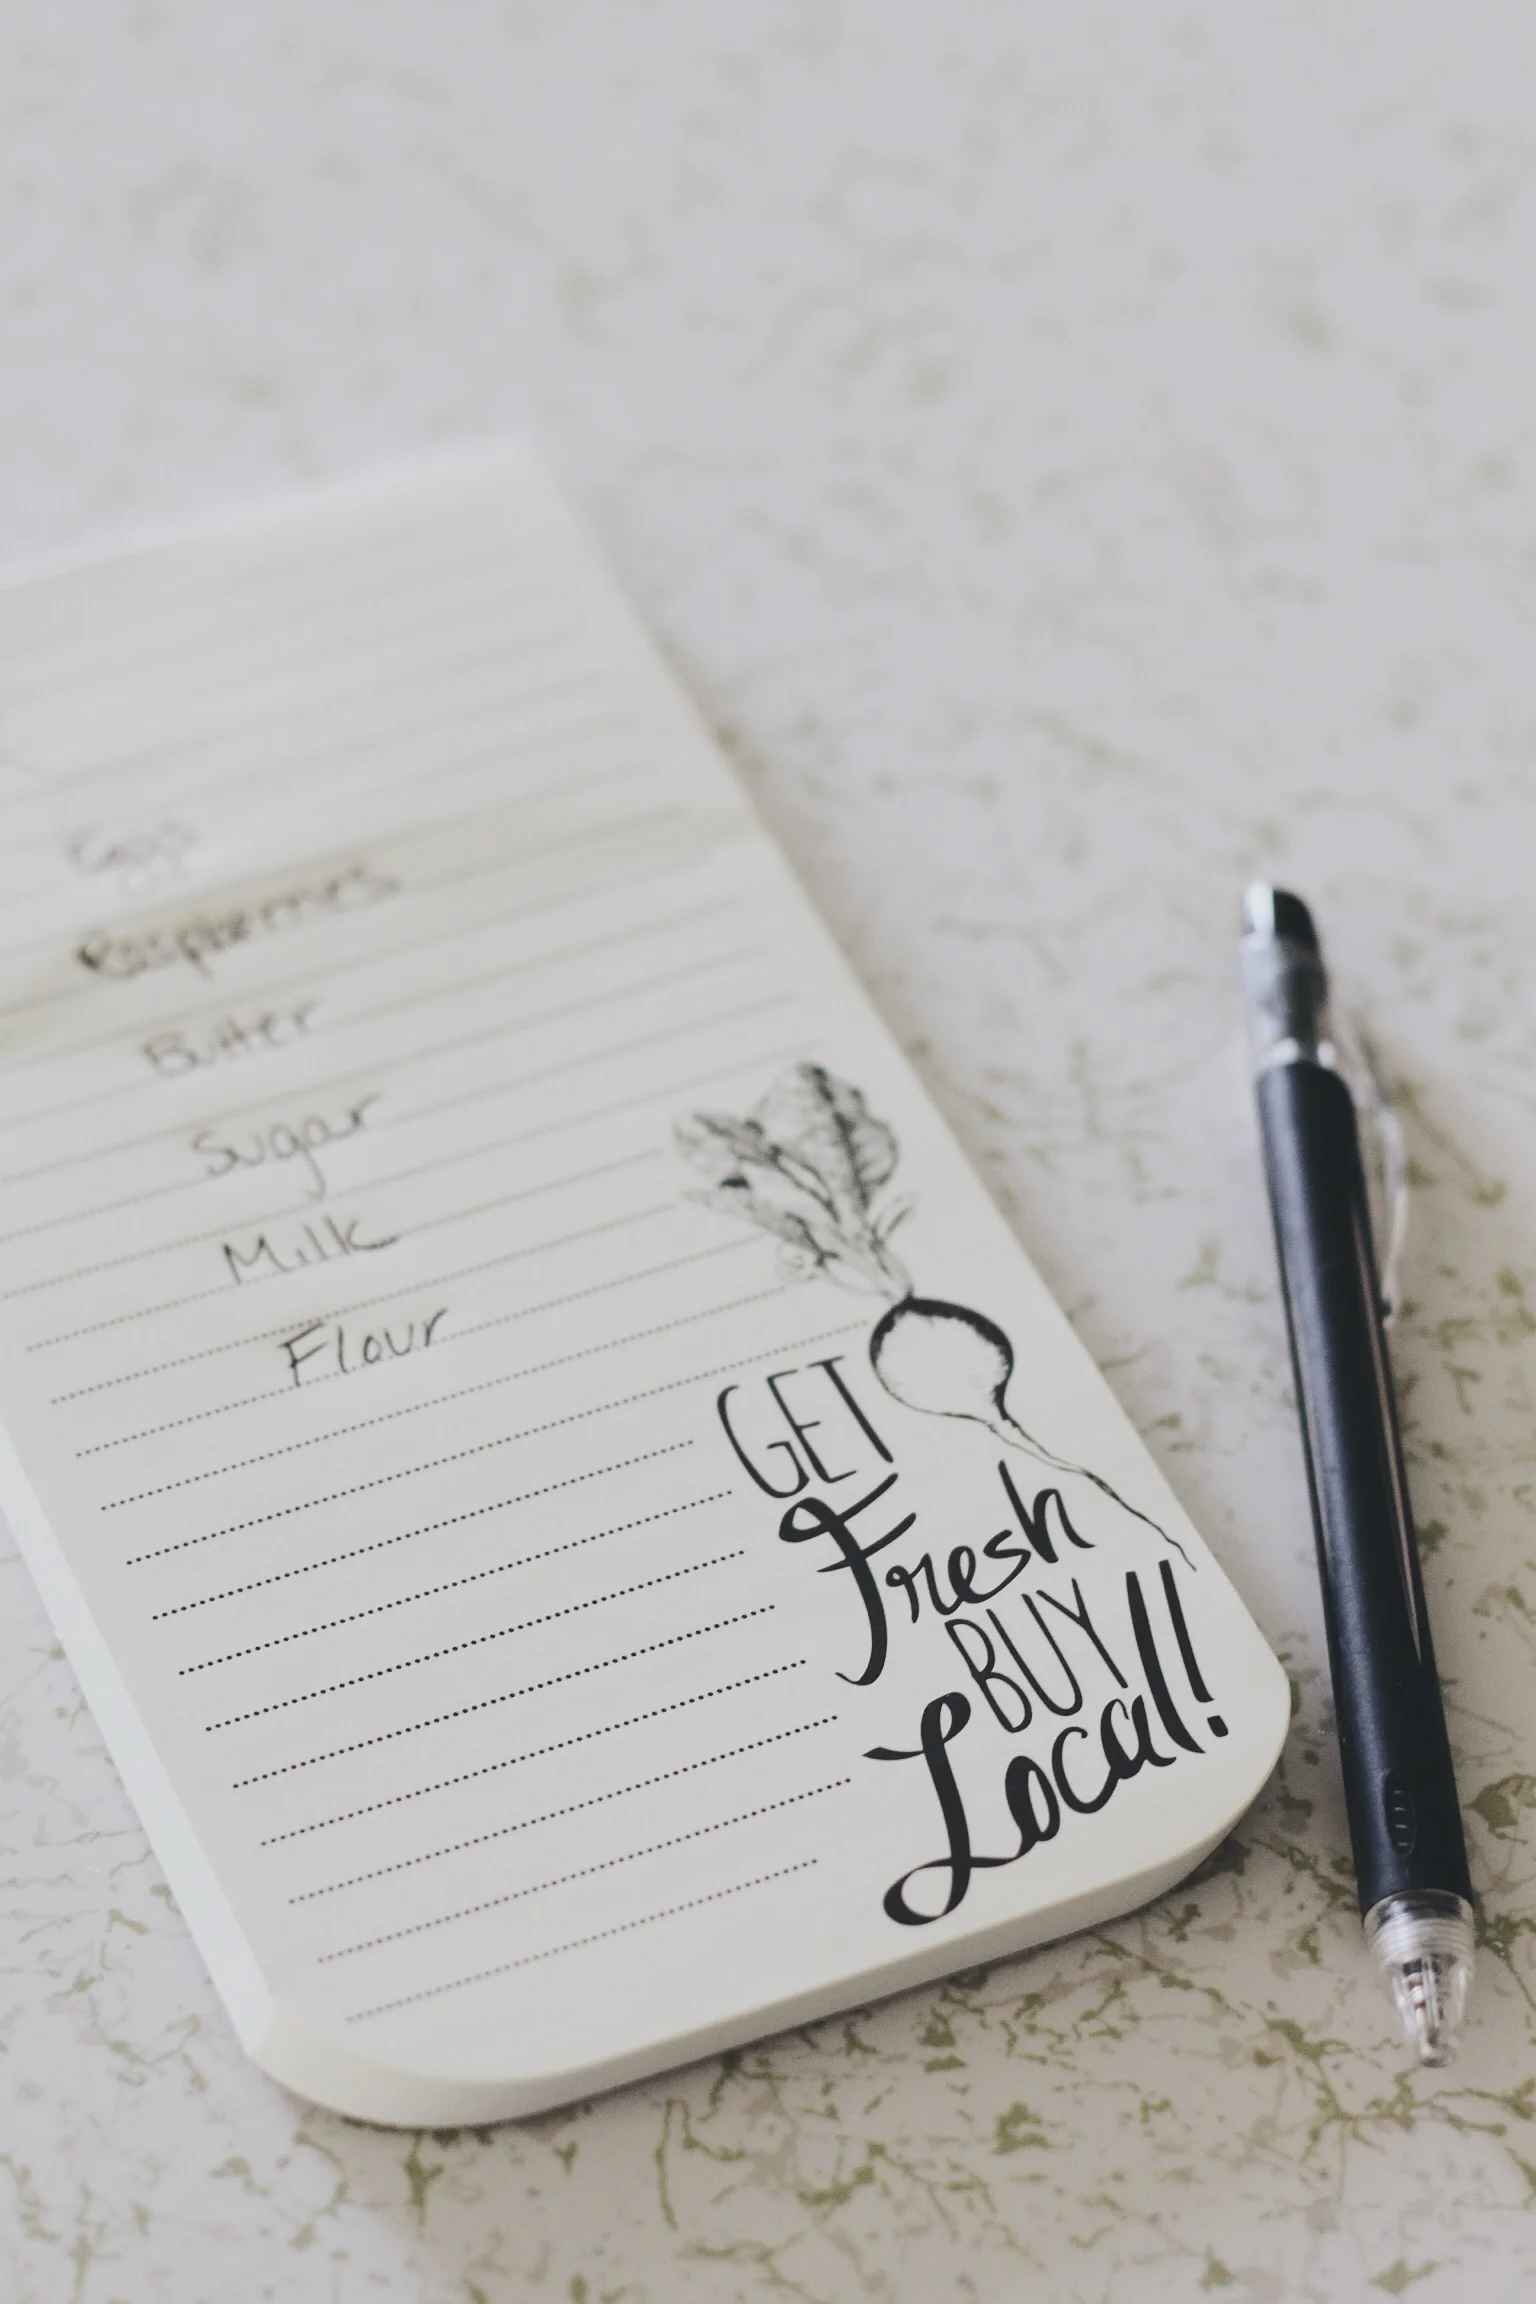 Eggs
Raspberries
Butter
Sugar
Milk
Flour
GET
Fresh
BUY
Local!